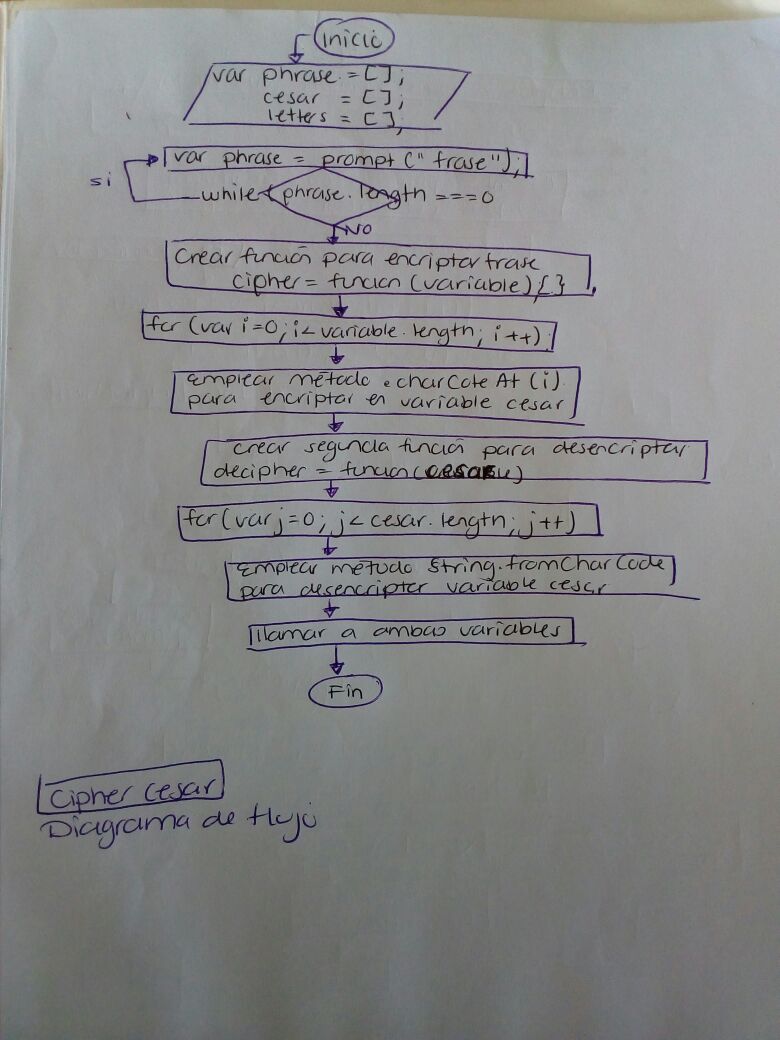 inicio
var phrase = [];
cesar = [];
letters = [];
var phrase = prompt ("frase");
si
while (phrase.length === 0
NO
Crear función para encriptar frase
cipher = funcion (variable) { }
for (var i=0; i< variable.length; i++)
Emplear método .charCoteAt (i)
para encriptar en variable cesar
crear segunda función para desencriptar
decipher = funcion (
for (var j=0; j< cesar.length; j++)
Emplear método String.fromCharCode
para desencriptar variable cesar
llamar a ambas variables
Fin
Cipher cesar
Diagrama de flujo